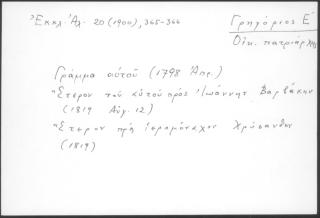 Ἐκκλ. Ἀλ. 20 (1900), 365-366
Γρηγόριος Ε´
Οἰκ. πατριάρχης
Γράμμα αὐτοῦ (1798 Ἀπρ.)
Ἕτερον τοῦ αὐτοῦ πρὸς Ἰωάννην Βαρβάκην
(1819 Αὐγ. 12)
Ἕτερον πρὸς ἱερομόναχον Χρύσανθον
(1819)